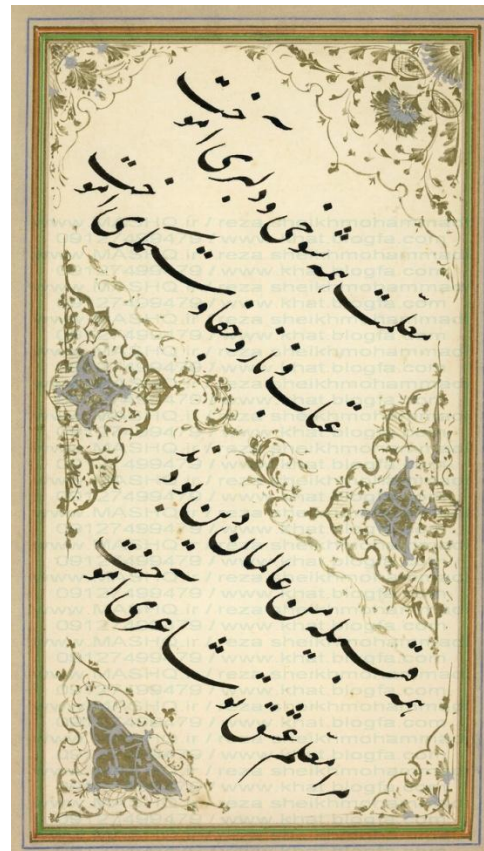 معلمت همه شوخی و دلبری آموخت
عتاب و ناز و جفا و ستمگری آموخت
همه قبیله من عالمان دین بودند
مرا معلم عشق تو شاعری آموخت
www.MASHQ.ir / reza sheikhmohammad
09127499479 / www.khat.blogfa.com